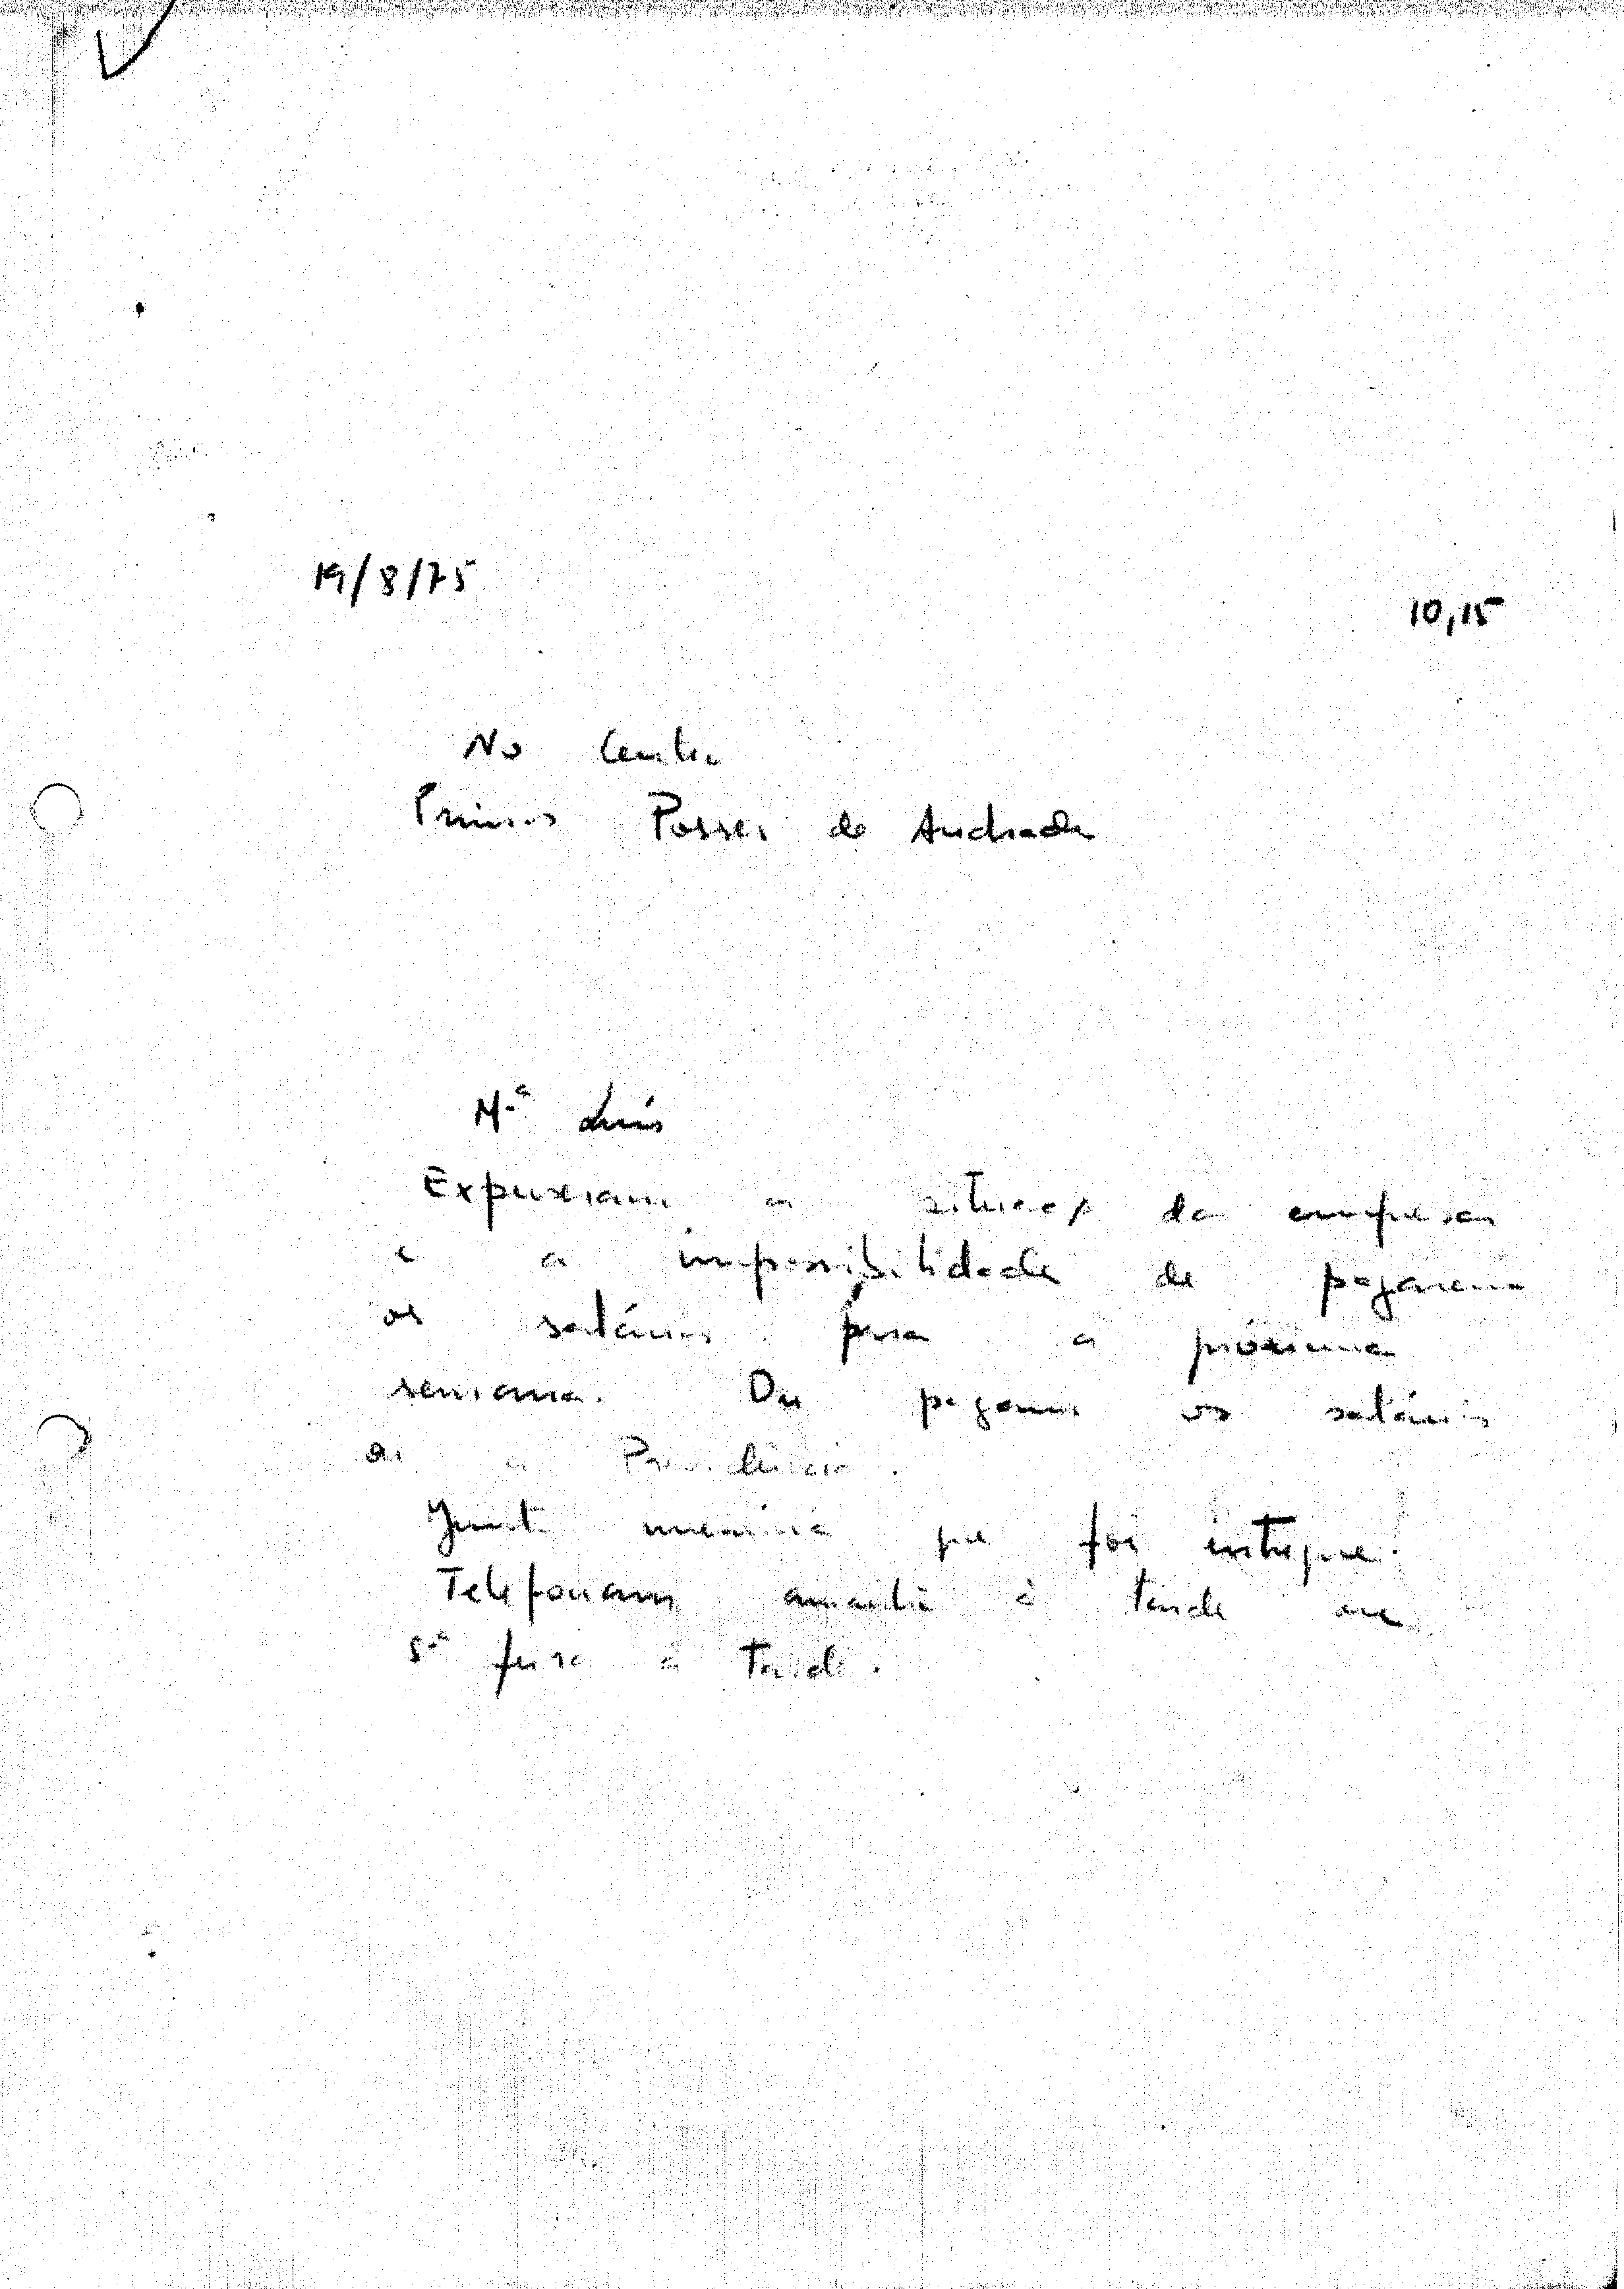 19/8/75
10,15
No Centro
Primos Posser de Andrade
M.ª Luís
Expuseram a situação da empresa
e a impossibilidade de pagarem
os salários para a próxima
semana. Ou pagam os salários
ou a Previdência.
Junto memória que foi entregue.
Telefonam amanhã à tarde ou
5.ª feira à tarde.